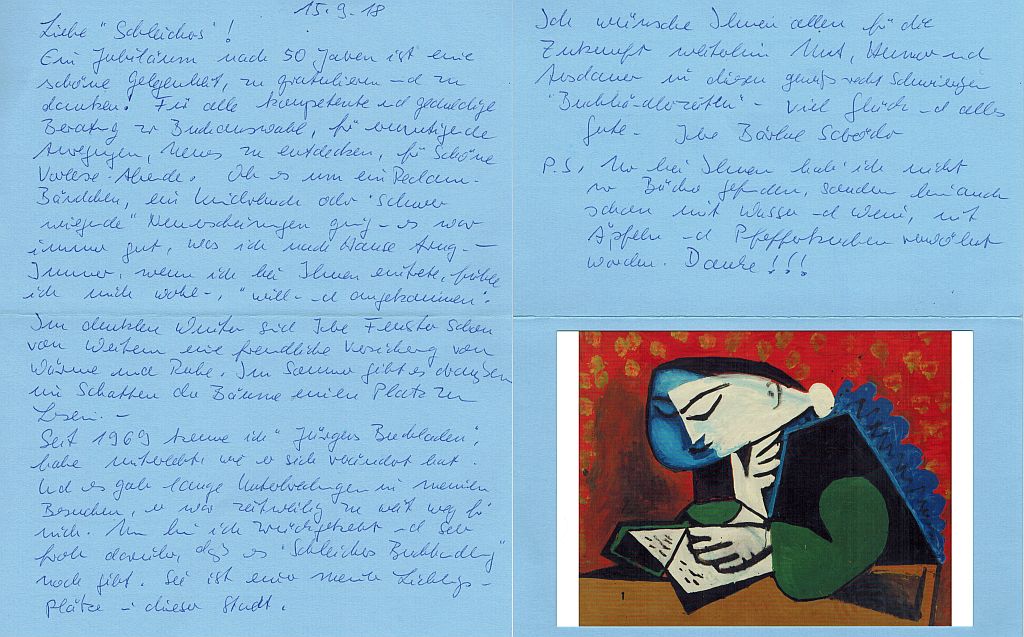 15.9.18
Liebe "Schleichers"!
Ein Jubiläum nach 50 Jahren ist eine
schöne Gelegenheit, zu gratulieren und zu
danken. Für alle kompetente und geduldige
Beratung zur Buchauswahl, für ermutigende
Anregungen, Neues zu entdecken, für schöne
Vorlese-Abende. Ob es um ein Reclam-
Bändchen, ein Kinderbuch oder "schwer
wiegende" Neuerscheinungen ging – es war
immer gut, was ich nach Hause trug –
Immer, wenn ich bei Ihnen eintrete, fühle
ich mich wohl-, "will- und angekommen".
Im dunklen Winter sind Ihre Fenster schon
von Weitem eine freundliche Versicherung von
Wärme und Ruhe. Im Sommer gibt es draußen
im Schatten der Bäume einen Platz zum
Lesen. –
Seit 1969 kenne ich "Jürgens Buchladen",
habe miterlebt, wie er sich verändert hat.
Und es gab lange Unterbrechungen in meinen
Besuchen, er war zeitweilig zu weit weg für
mich. Nun bin ich zurückgekehrt und sehr
froh darüber, daß es "Schleichers Buchhandlung"
noch gibt. Sie ist einer meiner Lieblings-
plätze in dieser Stadt.
Ich wünsche Ihnen allen für die
Zukunft weiterhin Mut, Humor und
Ausdauer in diesen gewiss recht schwierigen
"Buchhändlerzeiten" – viel Glück und alles
Gute – Ihre Bärbel
P.S. Nur bei Ihnen hab' ich nicht
nur Bücher gefunden, sondern bin auch
schon mit Wasser und Wein, mit
Äpfeln und Pfefferkuchen verwöhnt
worden. Danke!!!
1